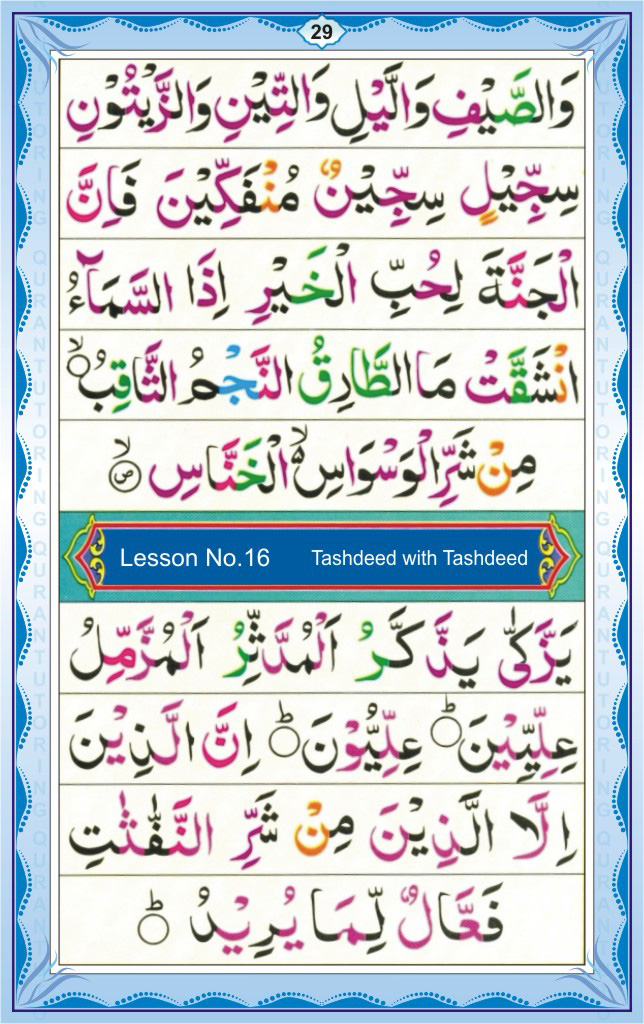 29
وَالصَّيْفِ وَالَّيْلِ وَالتِّيْنِ وَالزَّيْتُوْنِ
سِجِّيْلٍ سِجِّيْنٌ مُنْفَكِّيْنَ فَاِنَّ
الْجَنَّةَ لِحُبِّ الْخَيْرِ اِذَا السَّمَآءُ
انْشَقَّتْ مَا الطَّارِقُ النَّجْمُ الثَّاقِبُ ۙ
مِنْ شَرِّ الْوَسْوَاسِ ۙ الْخَنَّاسِ ۙ ص
Lesson No.16 Tashdeed with Tashdeed
يَزَّكّٰى يَذَّكَّرُ اَلْمُدَّثِّرُ اَلْمُزَّمِّلُ
عِلِّيِّيْنَ ؕ عِلِّيُّوْنَ ؕ اِنَّ الَّذِيْنَ
اِلَّا الَّذِيْنَ مِنْ شَرِّ النَّفّٰثٰتِ
فَعَّالٌ لِّمَا يُرِيْدُ ؕ
QURAN TUTORING QURAN TUTORING
QURAN TUTORING QURAN TUTORING